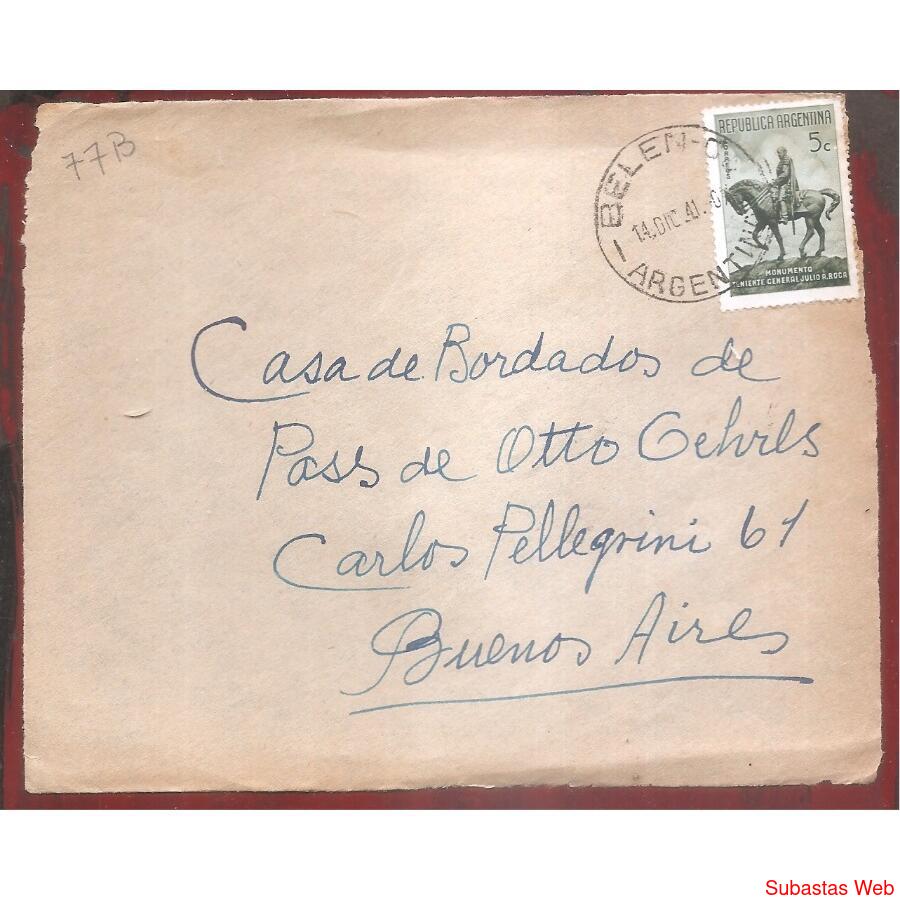 77B
BELEN-C
14.DIC 41.
ARGENTINA
REPUBLICA ARGENTINA
5c
CORREOS
MONUMENTO
TENIENTE GENERAL JULIO A. ROCA
Casa de Bordados de
Pass de Otto Gehrls
Carlos Pellegrini 61
Buenos Aires
Subastas Web